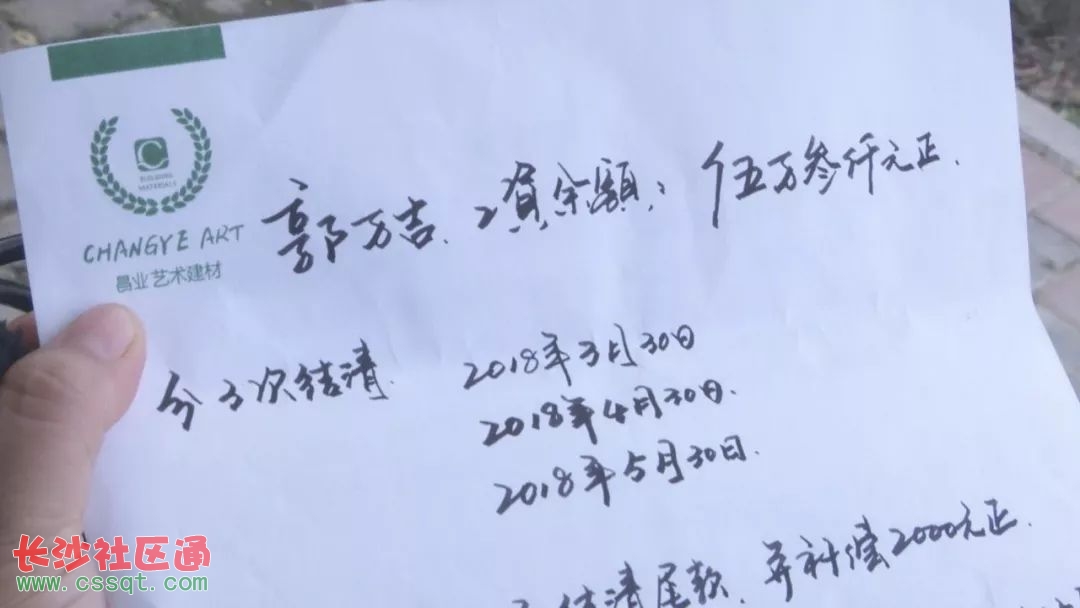 C
BUILDING
MATERIALS
CHANGYE ART
昌业艺术建材
郭万吉、工资余额：伍万叁仟元正.
分3次结清. 2018年3月30日
2018年4月30日.
2018年5月30日.
结清尾款、并补偿2000元正.
长沙社区通
www.cssqt.com